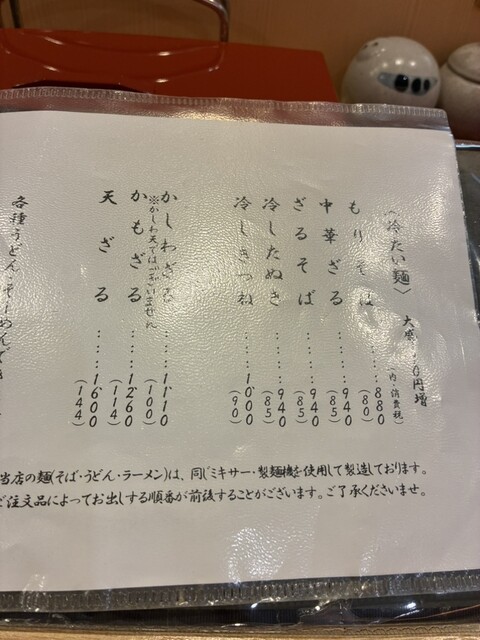 〈冷たい麺〉 大盛 0円増
(内・消費税)
もりそば……880
(80)
中華ざる……940
(85)
ざるそば……940
(85)
冷したぬき……940
(85)
冷しきつね……1,000
(90)
かしわざる……1,110
(100)
※かしわ天ではございません
かもざる……1,260
(114)
天ざる……1,600
(144)
各種うどん・そーめんでき
当店の麺(そば・うどん・ラーメン)は、同じミキサー・製麺機を使用して製造しております。
ご注文品によってお出しする順番が前後することがございます。ご了承くださいませ。